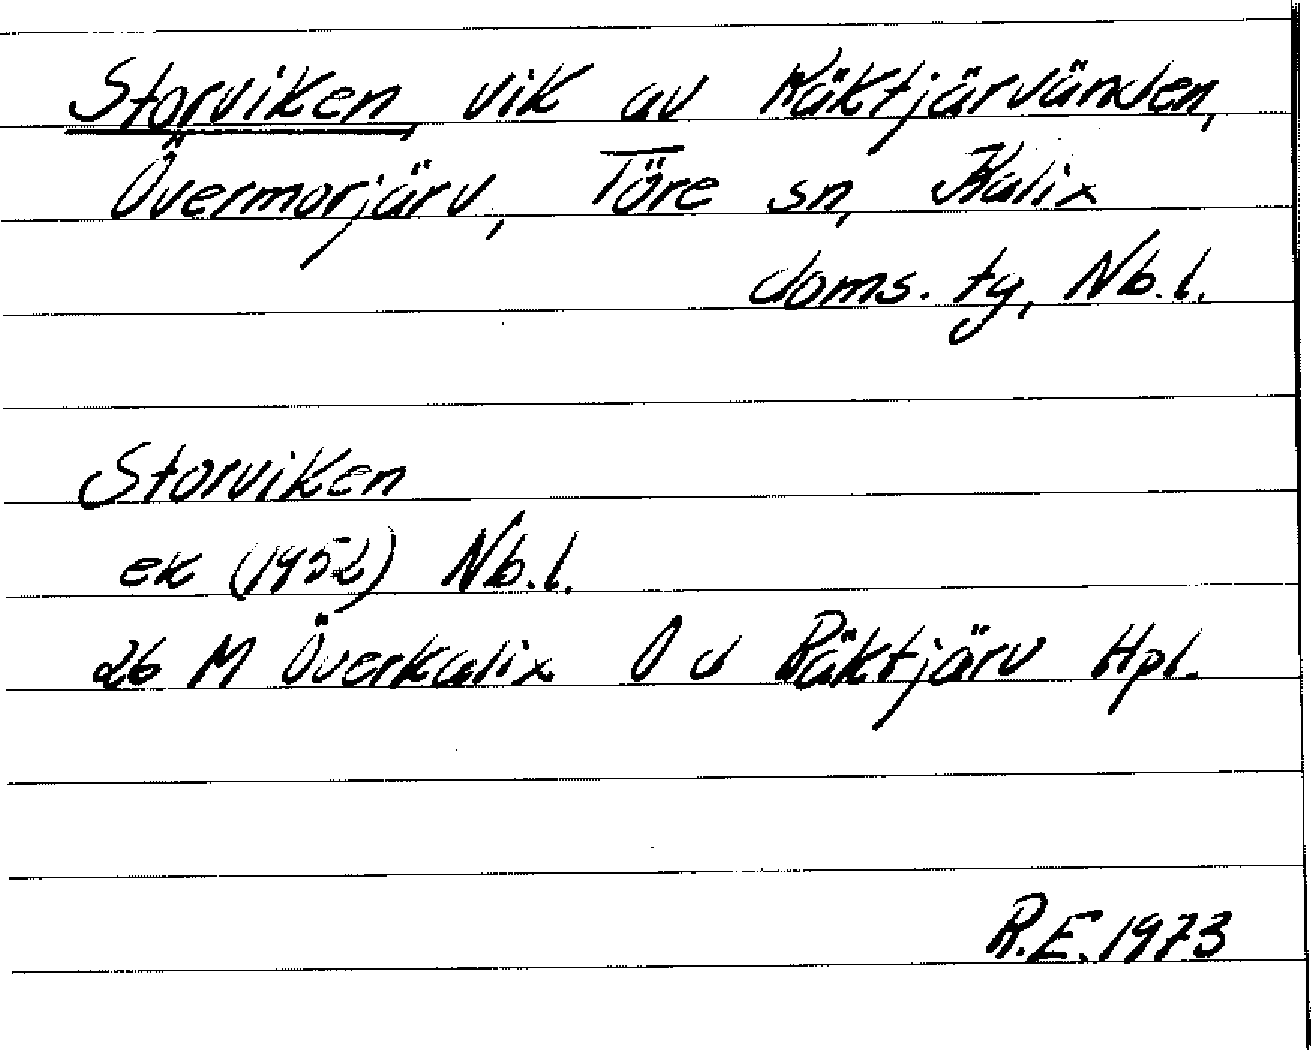 Storviken, vik av Räktjärvänden,
Övermorjärv, Töre sn, Kalix
doms. tg, Nb.l.
Storviken
ek (1952) Nb.l.
26 M Överkalix O d Räktjärv Hpl.
R.E. 1973